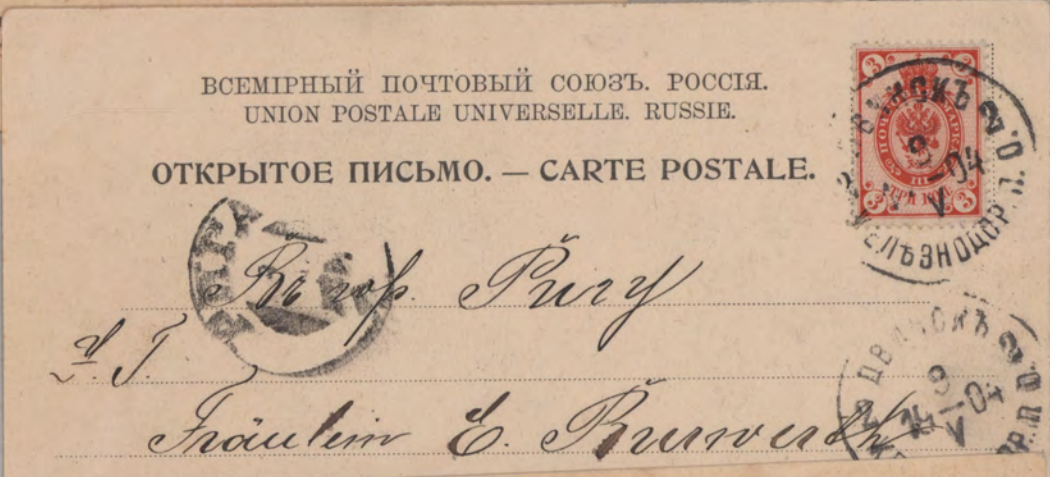 ВСЕМІРНЫЙ ПОЧТОВЫЙ СОЮЗЪ. РОССІЯ.
UNION POSTALE UNIVERSELLE. RUSSIE.
ОТКРЫТОЕ ПИСЬМО. — CARTE POSTALE.
3 3
3 3
ДВИНСКЪ 2 О.
8
V -04
РИГА
Въ гор. Ригу
ДВИНСКЪ 2 О.
8
V -04
Fräulein E.